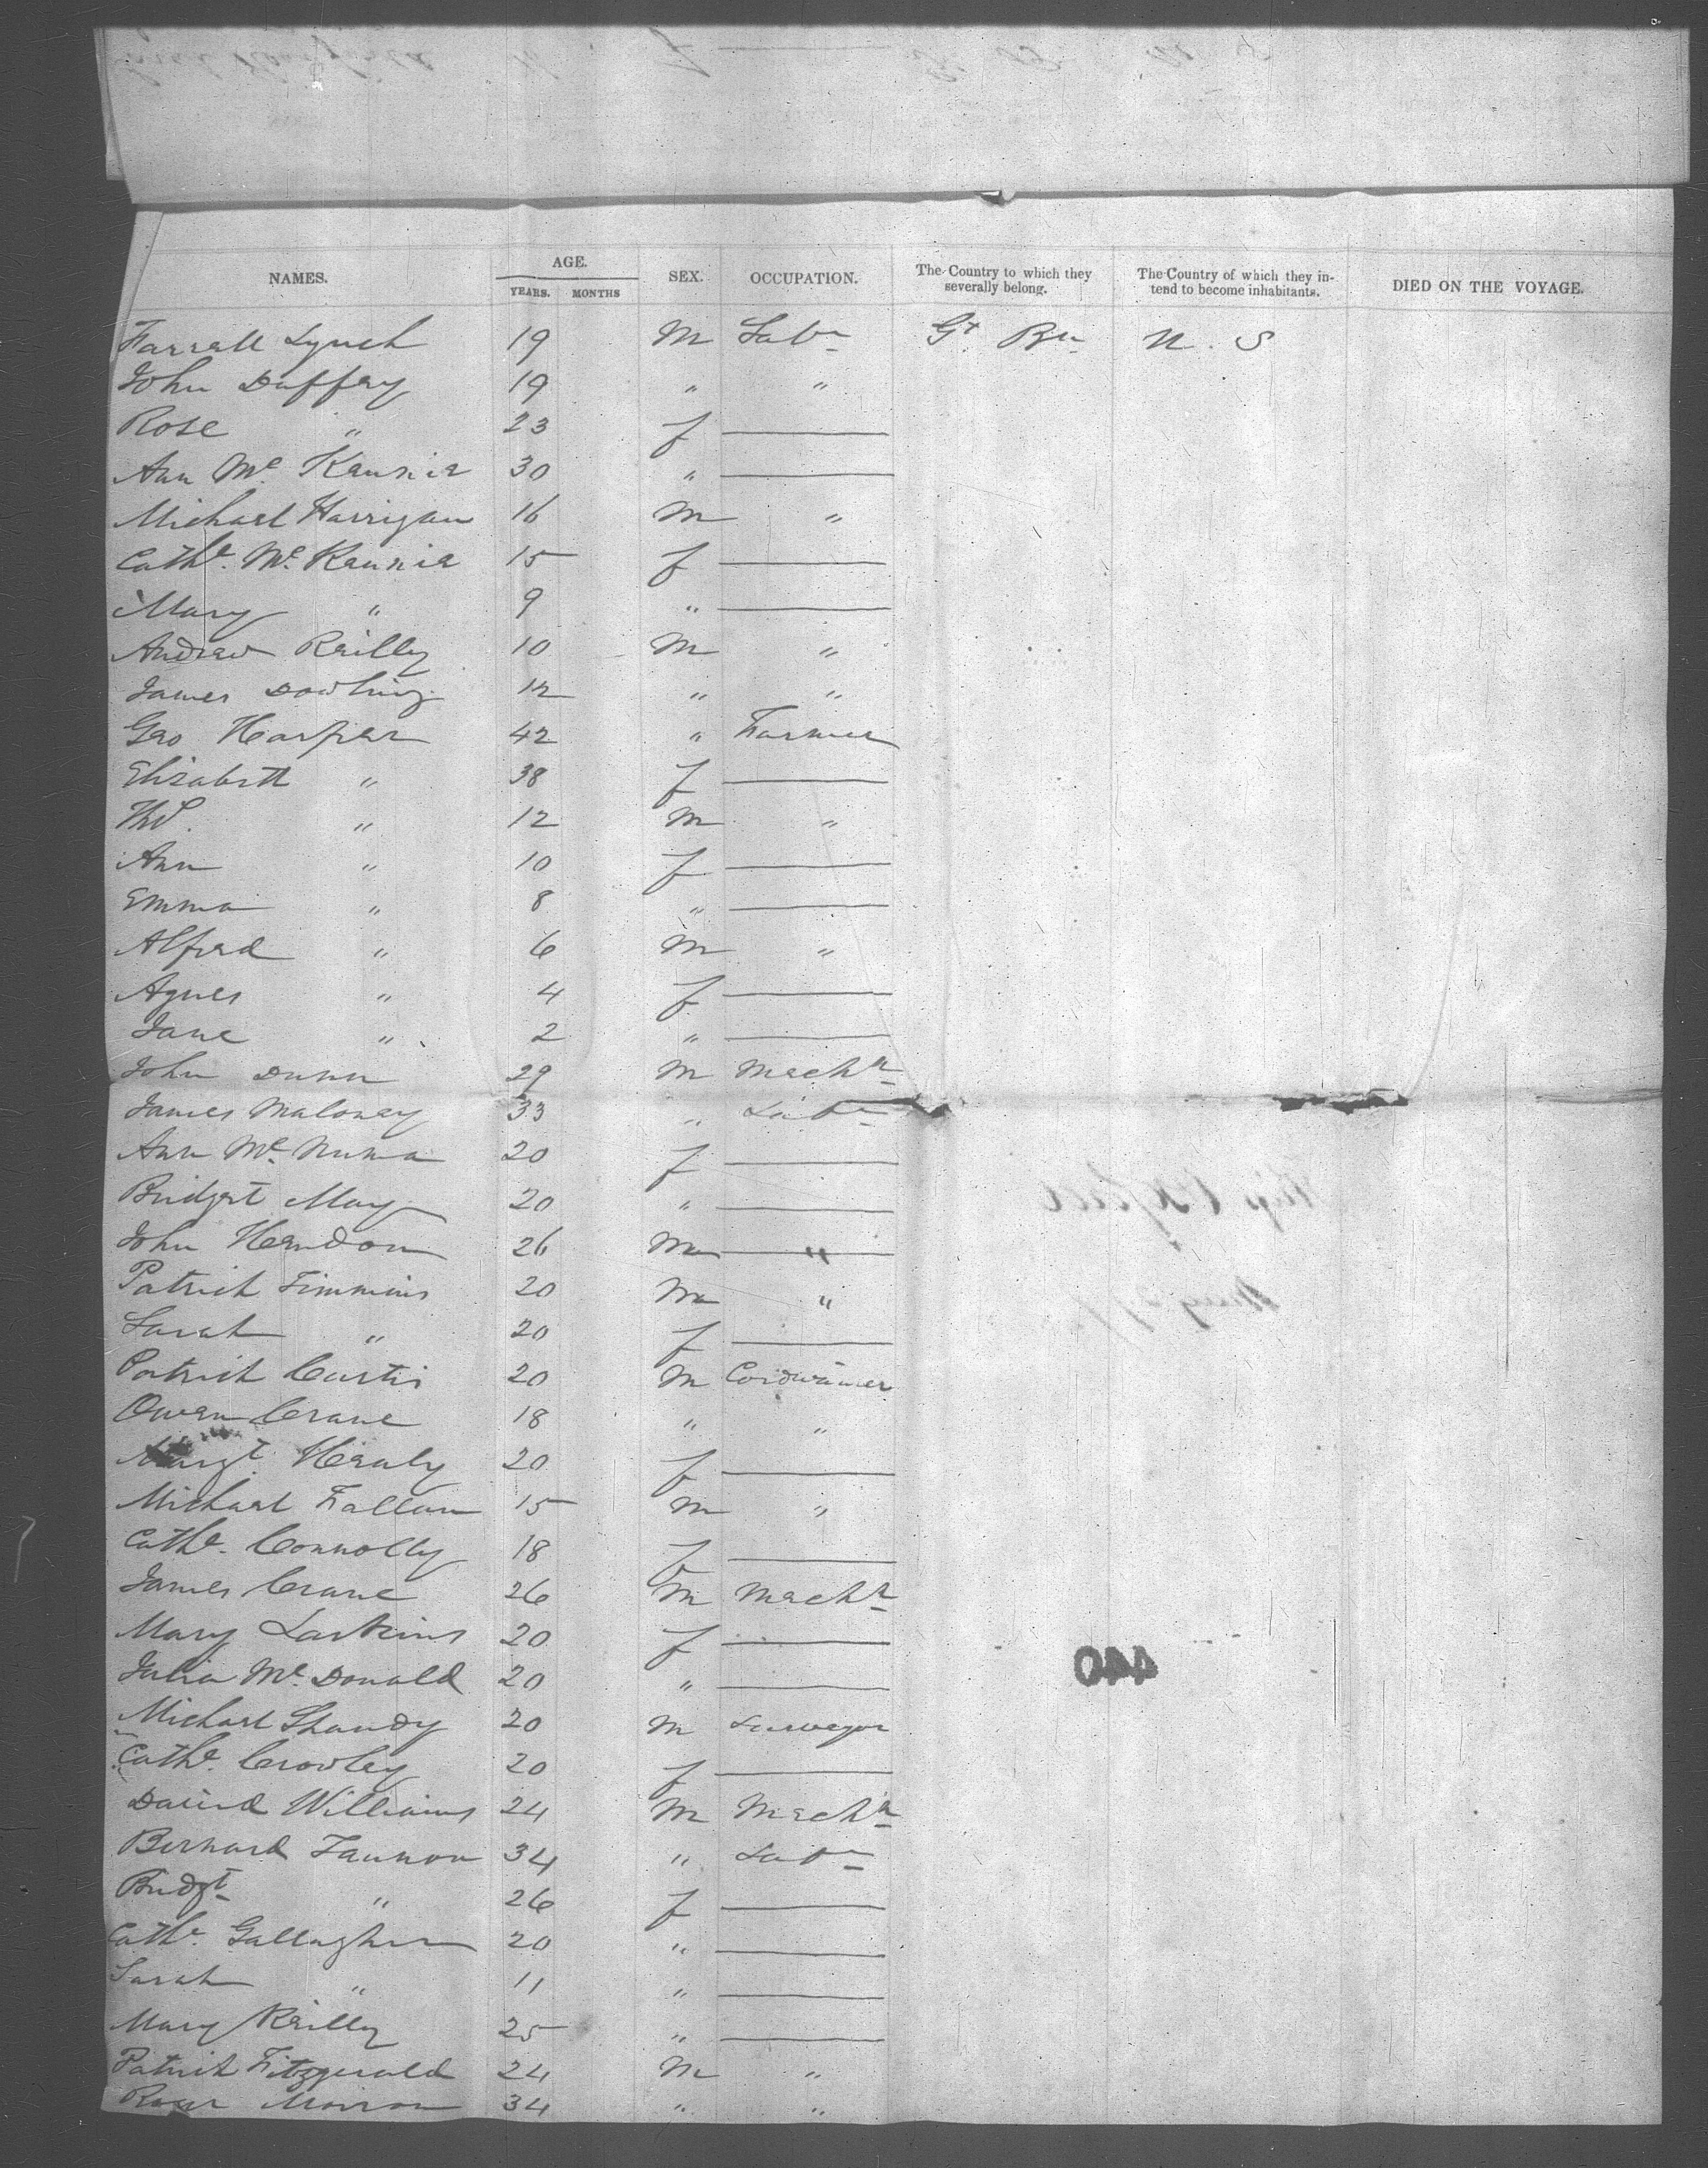 NAMES. AGE. YEARS. MONTHS SEX. OCCUPATION. The Country to which they severally belong. The Country of which they intend to become inhabitants. DIED ON THE VOYAGE.
Farrell Lynch 19 M Labr Gt Bn U. S
John Duffey 19 " "
Rose " 23 f
Ann Mc Kennie 30 "
Michael Harrigan 16 M "
Cathe. Mc Kennie 15 f
Mary " 9 "
Andrew Reilly 10 M "
James Dowling 12 " "
Geo Harper 42 " Farmer
Elizabeth " 38 f
Ths. " 12 M "
Ann " 10 f
Emma " 8 "
Alfred " 6 M "
Agnes " 4 f
Jane " 2 "
John Dunn 29 M Mechn
James Maloney 33 " Labr
Ann Mc. Numa 20 f
Bridget May 20 "
John Hendon 26 M "
Patrick Timmins 20 M "
Sarah " 20 f
Patrick Curtis 20 M Cordwainer
Owen Crane 18 " "
Margt. Henly 20 f
Michael Fallon 15 M "
Cathe. Connolly 18 f
James Crane 26 M Mechn
Mary Larkins 20 f
Julia Mc. Donald 20 "
Michael Shandy 20 M Surveyor
Cathe. Crowley 20 f
David Williams 24 M Mechn
Bernard Fannon 34 " Labr
Bridgt " 26 f
Cathe. Gallagher 20 "
Sarah " 11 "
Mary Reilly 25 "
Patrick Fitzgerald 24 M "
Roger Morrow 34 " "
440